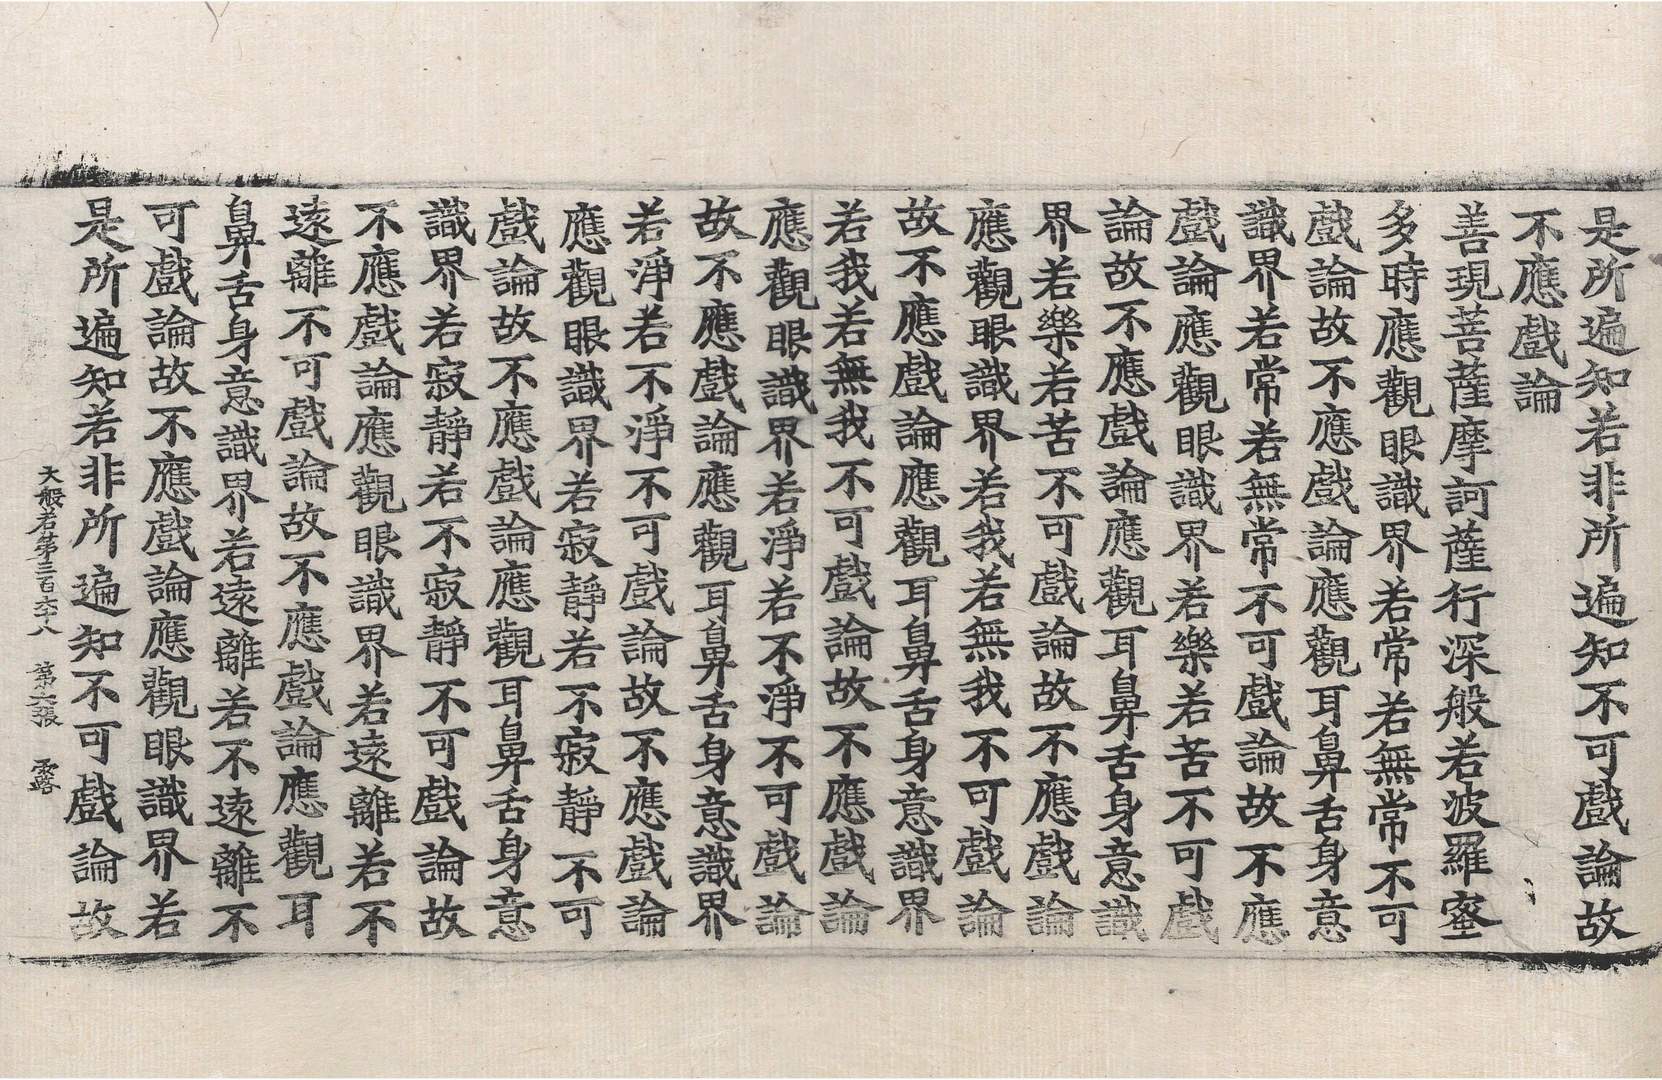 是所遍知若非所遍知不可戲論故
不應戲論
善現菩薩摩訶薩行深般若波羅蜜
多時應觀眼識界若常若無常不可
戲論故不應戲論應觀耳鼻舌身意
識界若常若無常不可戲論故不應
戲論應觀眼識界若樂若苦不可戲
論故不應戲論應觀耳鼻舌身意識
界若樂若苦不可戲論故不應戲論
應觀眼識界若我若無我不可戲論
故不應戲論應觀耳鼻舌身意識界
若我若無我不可戲論故不應戲論
應觀眼識界若淨若不淨不可戲論
故不應戲論應觀耳鼻舌身意識界
若淨若不淨不可戲論故不應戲論
應觀眼識界若寂靜若不寂靜不可
戲論故不應戲論應觀耳鼻舌身意
識界若寂靜若不寂靜不可戲論故
不應戲論應觀眼識界若遠離若不
遠離不可戲論故不應戲論應觀耳
鼻舌身意識界若遠離若不遠離不
可戲論故不應戲論應觀眼識界若
是所遍知若非所遍知不可戲論故
大般若第三百六十八 第六張 露